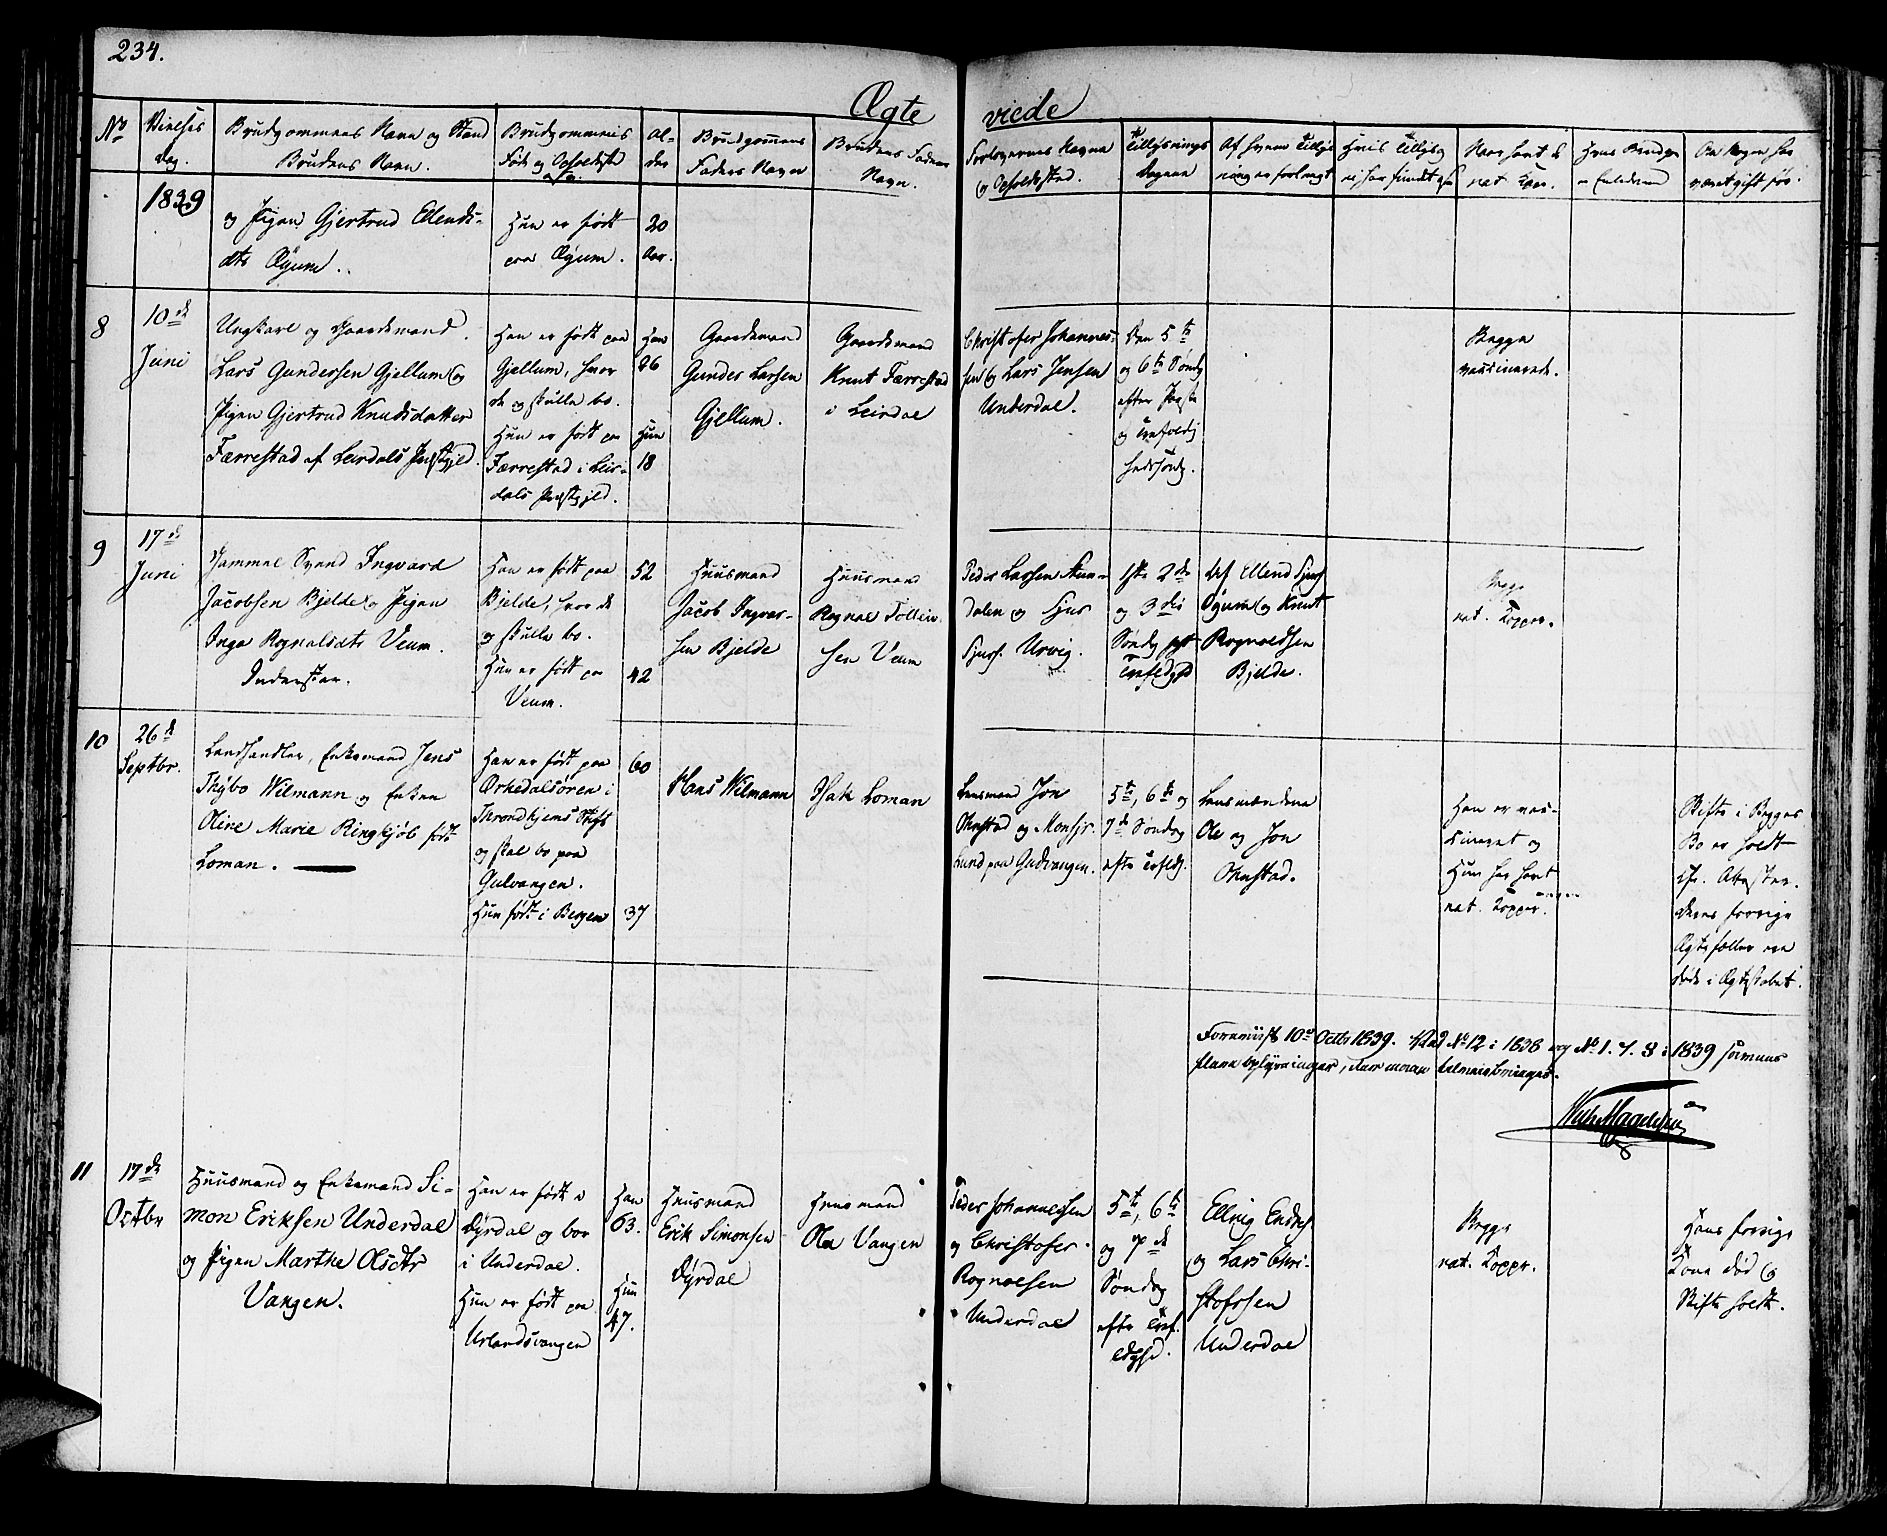 234.
Ægte viede
No
Vielses Dag.
Brudgommens Navn og Stand
Brudens Navn.
Brudgommens
Føde og Opholdssted
Al-
der
Brudgomens
Faders Navn
Brudens Faders
Navn.
Forlovernes Navne
og Opholdssted.
Tillysnings
Dagene
Af hvem Tillys
ning er forlangt
Naar havt de
nat. Kop.
1839
og Pigen Gjertrud Ellends-
dtr Øÿum.
Hun er født
paa Øÿum.
20
Aar.
8
10de
Juni
Ungkarl og Gaardmand
Lars Gundersen Gjellum og
Pigen Gjertrud Knudsdatter
Færrestad af Leirdals Præstgjeld.
Han er født paa
Gjellum, hvor
de og skulle bo.
Hun er født paa
Færrestad i Leir-
dals Præstgjeld.
Han
26
Hun
18
Gaardmand
Gunder Larsen
Gjellum.
Gaardmand
Knut Færrestad
i Leirdal
Christofer Johannes-
sen og Lars Jensen
Underdal.
Den 5te
og 6te Søndg
efter Paaske
og Trefoldig
hedssøndg.
Begge
vaccinerede.
9
17de
Juni
Gammel Svend Ingvard
Jacobsen Bjelde og Pigen
Inga Rognaldsdtr Veum.
Inderster.
Han er født paa
Bjelde, hvor de
og skulle bo.
Hun er født paa
Veum.
52
42
Huusmand
Jacob Ingvar-
sen Bjelde
Huusmand
Rognal Tollein-
sen Veum
Peder Larsen Stun-
dalen og Sjur
Sjurs. Urvig.
1ste 2den
og 3die
Søndg
Trefldghd
Af Ellend Sjurs
Øÿum og Knut
Rognaldsen
Bjelde.
Begge
nat. Kopper.
10
26de
Septbr.
Landhandler, Enkemand Jens
Thybo Wilmann og Enken
Oline Marie Ringkjøb født
Loman.
Han er født paa
Ørkedalsøren i
Throndhjems Stift
og skal bo paa
Gudvangen.
Hun født i Bergen
60
37
Hans Wilmann
Isak Loman
Lensmand Jon
Ohnstad og Monsjr.
Lund paa Gudvangen.
5te, 6te og
7de Søndag
efter Trefldh.
Lensmændene
Ole og Jon
Ohnstad.
Han er vac-
cineret og
Hun har havt
nat. Kopper.
Skifte i Begges
Bo er holdt
ifr. Attester.
deres forrige
Ægtefæller ere
døde i Ægteskabet.
Foreviist 10de Octbr 1839. Ved No 12 i 1838 og No 1. 7. 8 i 1839 savnes
flere oplysninger, som maae tilveiebringes.
11
17de
Octbr
Huusmand og Enkemand Si-
mon Eriksen Underdal
og Pigen Marthe Olsdtr
Vangen.
Han er født i
Dÿrdal og bor
i Underdal.
Hun er født paa
Urlandsvangen
Han
63.
Hun
47.
Huusmand
Erik Simonsen
Dÿrdal
Huusmand
Ole Vangen
Peder Johannessen
og Christofer
Rognalsen
Underdal
5te, 6te
og 7de
Søndag
efter Tref.
Elling Endres
og Lars Chri-
stofersen
Underdal
Begge
nat. Kopper.
Hans forrige
Kone død og
Skifte holdt.